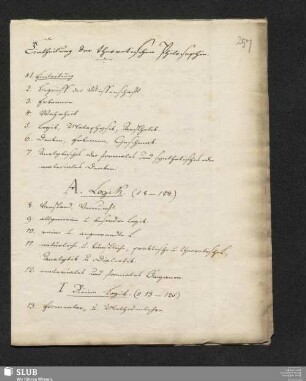 257
Eintheilung der theoretischen Philosophie
§1 Einleitung
2. Begriff der Wissenschaft
3. Erkennen
4. Wahrheit
5. Logik, Metaphysik, Aesthetik
6. Denken, Erkennen, Geschmack
7. Analytisches oder formales und synthetisches oder
materiales Denken
A. Logik (§ 8 – 128)
8 Verstand, Vernunft
9 allgemeine u besondre Logik
10. reine u angewandte L
11 natürliche u künstliche, praktische u theoretische,
Analytik u Dialektik
12. materiales und formales Organon
I Reine Logik. (§ 13 – 125)
13. u
SLUB
Wir führen Wissen.